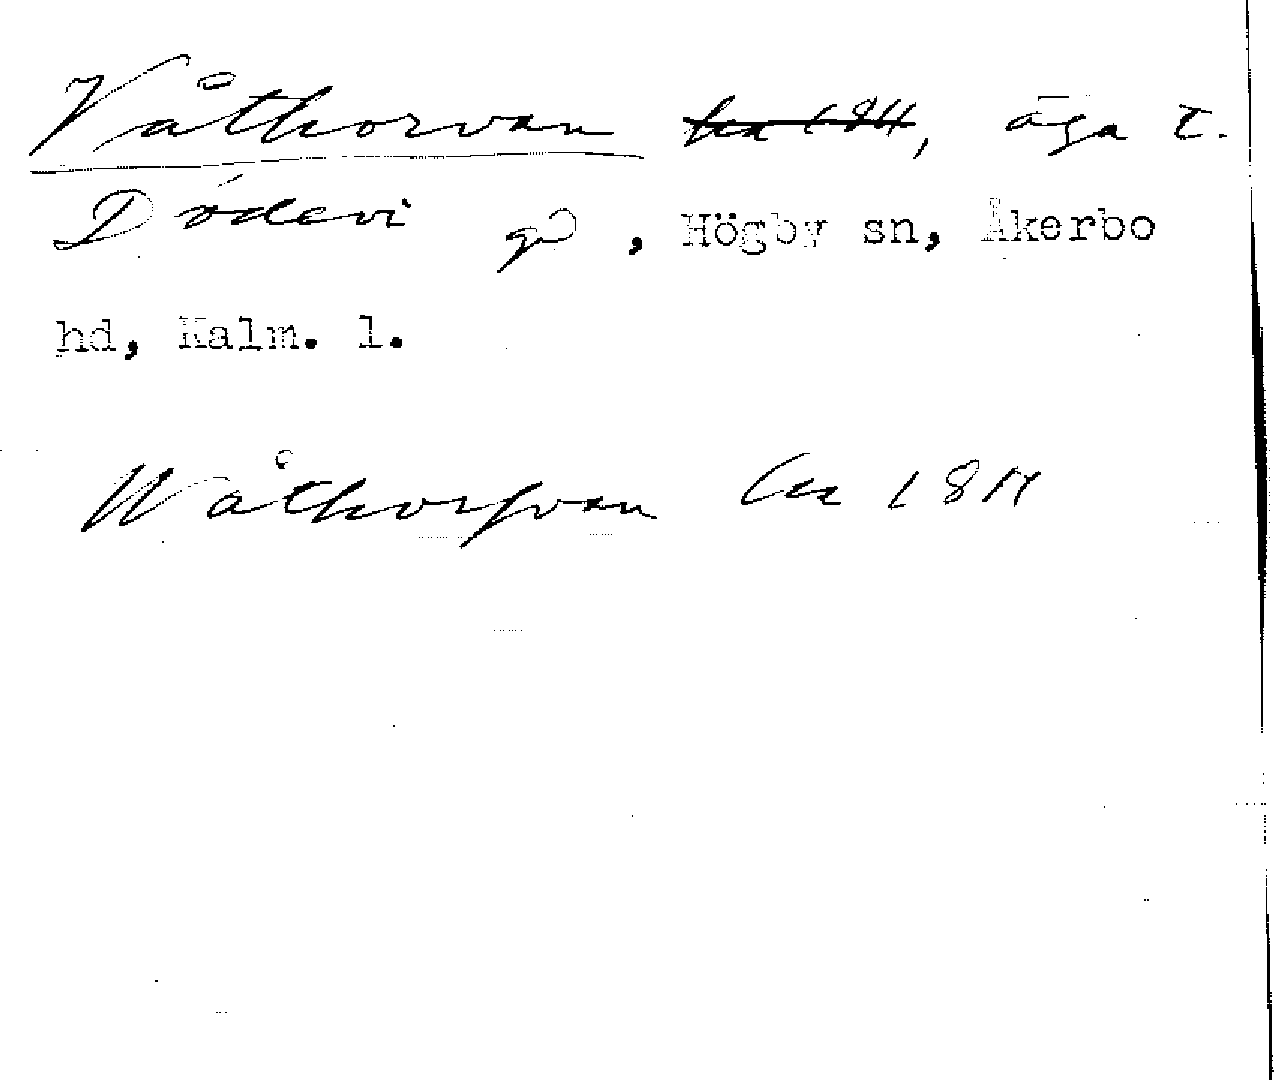 Våthorvan lm 1811, äga t.
Dödevi gd, Högby sn, Åkerbo
hd, Kalm. l.
Wåthorfvan lm 1811